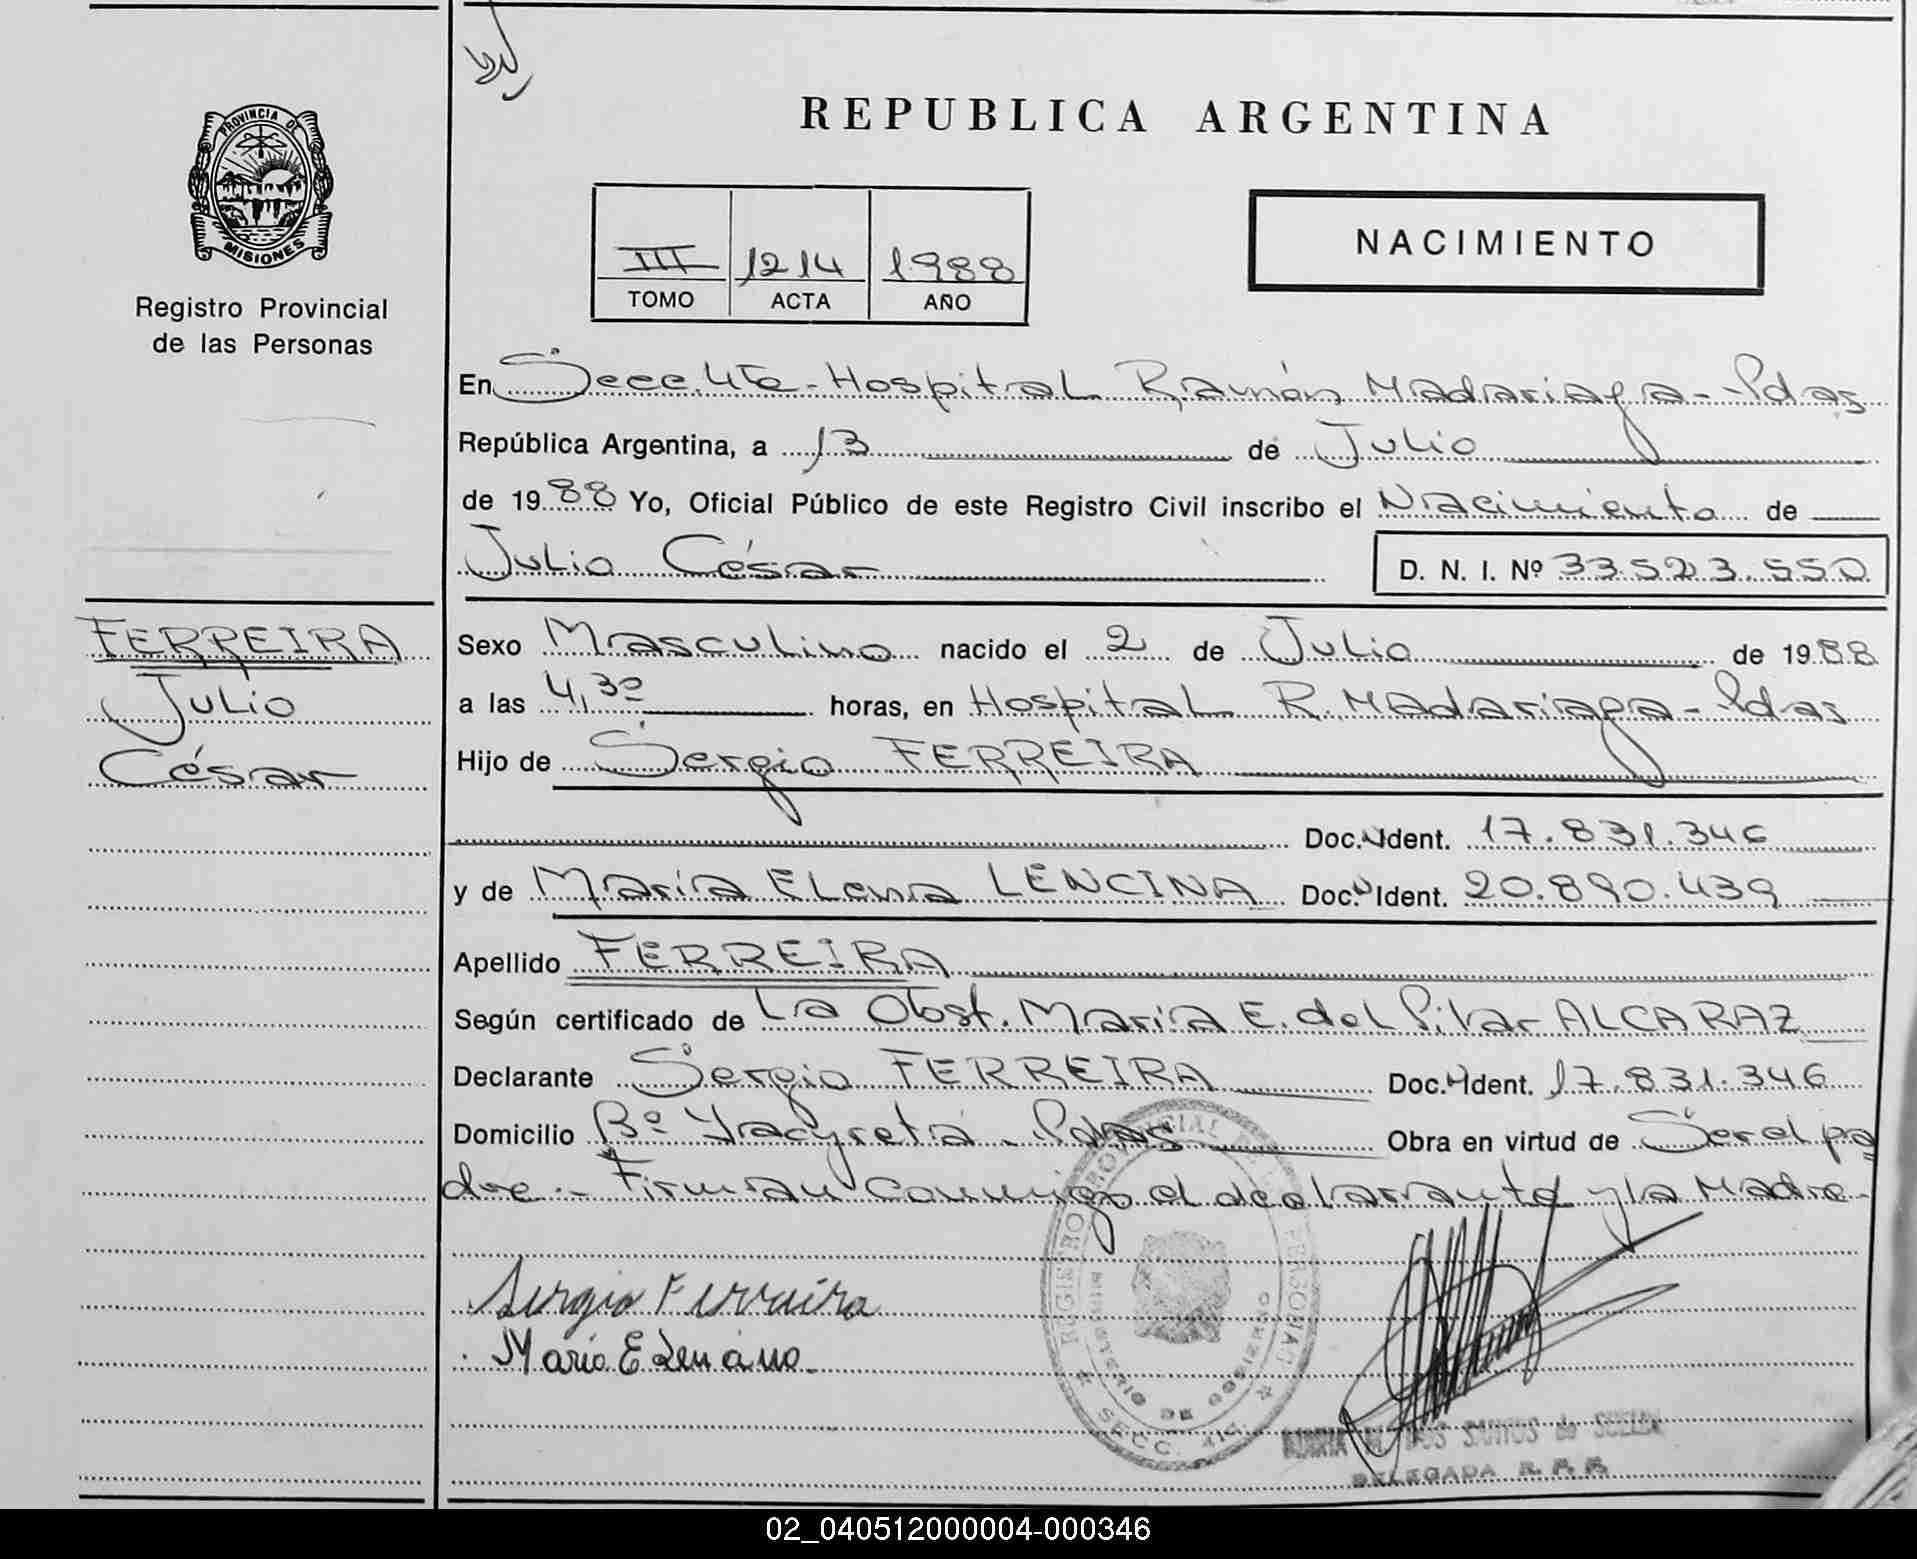 REPUBLICA ARGENTINA
PROVINCIA DE
MISIONES
Registro Provincial
de las Personas
NACIMIENTO
III 1214 1988
TOMO ACTA AÑO
En Secc. 4ta - Hospital Ramón Madariaga - Pdas
República Argentina, a 13 de Julio
de 1988 Yo, Oficial Público de este Registro Civil inscribo el Nacimiento de
Julio César
D. N. I. Nº 33.523.550
FERREIRA
Julio
César
Sexo Masculino nacido el 2 de Julio de 1988
a las 4,30 horas, en Hospital R. Madariaga - Pdas
Hijo de Sergio FERREIRA
Doc. Ident. 17.831.346
y de María Elena LENCINA Doc. Ident. 20.890.439
Apellido FERREIRA
Según certificado de La Obst. María E. del Pilar ALCARAZ
Declarante Sergio FERREIRA Doc. Ident. 17.831.346
Domicilio Bº Yacyretá - Pdas Obra en virtud de Ser el pa
dre - Firman conmigo el declarante y la Madre -
Sergio Ferreira
REGISTRO PROVINCIAL DE LAS PERSONAS
MINISTERIO DE GOBIERNO
SECC. 4ta.
DOS SANTOS de
DELEGADA R. P. P.
02_040512000004-000346